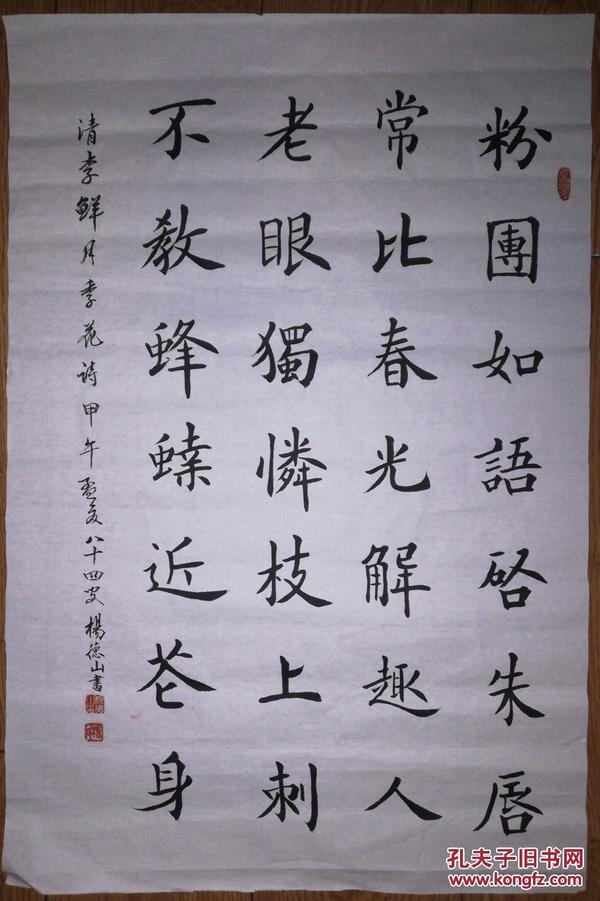 粉團如語啓朱唇
常比春光解趣人
老眼獨憐枝上刺
不教蜂蝶近花身
清李鮮月季花詩甲午孟夏八十四叟楊德山書
孔夫子旧书网
www.kongfz.com